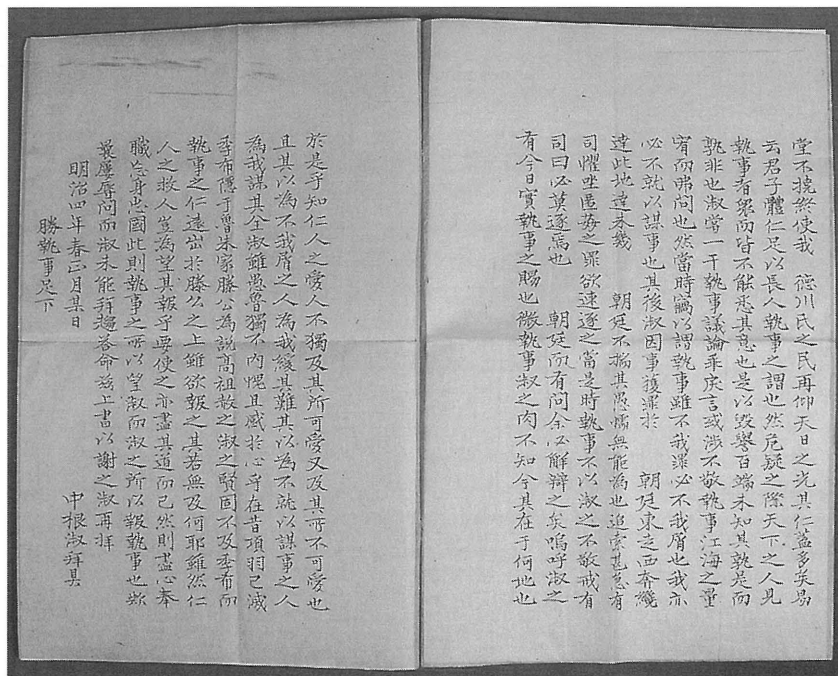 堂不撓終使我　德川氏之民再仰天日之光其仁蓋多矣易
云君子體仁足以長人執事之謂也然危疑之際天下之人見
執事者衆而皆不能悉其意也是以毀譽百端未知其孰是而
孰非也淑嘗一干執事議論乖戾言或涉不敬執事江海之量
宥而弗問也然當時竊以謂執事雖不我罪必不我屑也我亦
必不就以謀事也其後淑因事獲罪於　朝廷東走西奔纔
達此地達未幾　朝廷不揣其愚懦無能為也追索甚急有
司懼坐匿毎之罪欲速逐之當是時執事不以淑之不敬戒有
司曰必莫逐焉也　朝廷而有問余必解辯之矣嗚呼淑之
有今日實執事之賜也微執事淑之肉不知今其在于何地也
於是乎知仁人之愛人不獨及其所可愛又及其所不可愛也
且其以為不我屑之人為我緩其難其以為不就以謀事之人
為我謀其全淑雖愚魯獨不内愧且感於心乎在昔項羽已滅
季布隱于魯朱家滕公為説高祖赦之淑之賢固不及季布而
執事之仁遠出於滕公之上雖欲報之其若無及何耶雖然仁
人之救人豈為望其報乎要使之亦盡其道而已然則盡心奉
職忘身忠國此則執事之所以望淑而淑之所以報執事也歟
曩屢辱問而淑未能拜趨答命茲上書以謝之淑再拝
明治四年春正月某日
中根淑拜具
勝執事足下